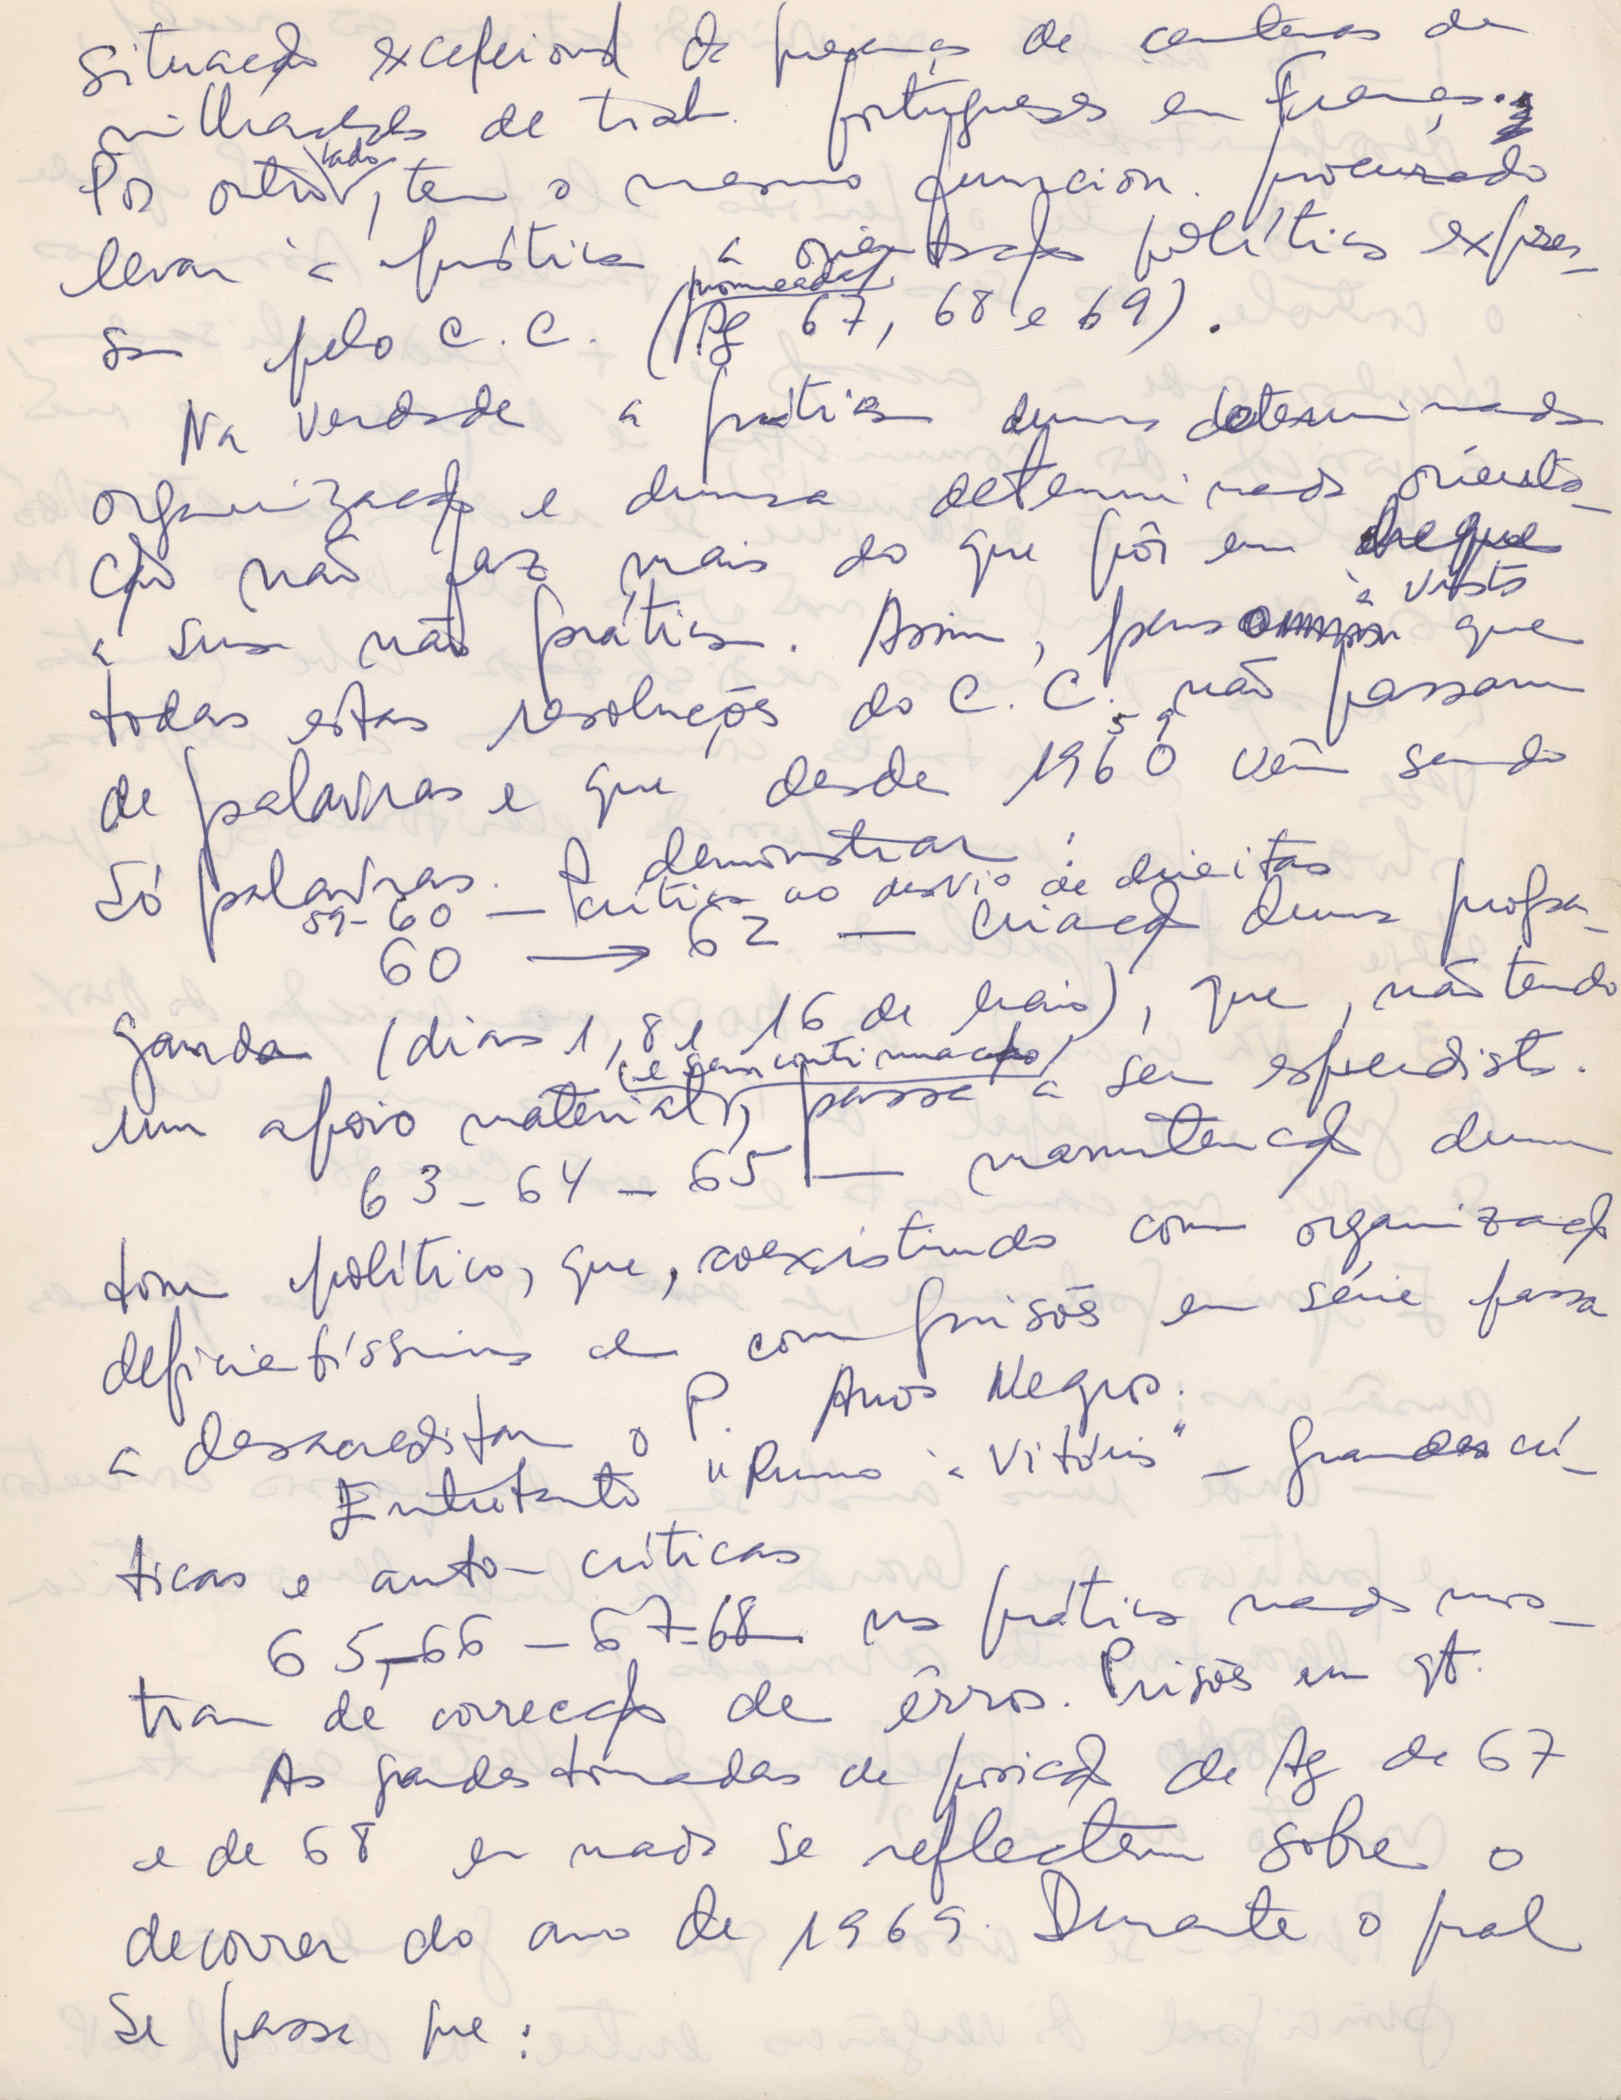 situação excepcional da presença de centenas de
milhares de trab. portugueses em França.
Por outro lado, tem o mesmo funcion. procurado
levar à prática a orientação política expres-
sa pelo C.C. (nomeadas Ag 67, 68 e 69).
Na verdade a prática duma determinada
organização e dumsa determinada orienta-
ção não faz mais do que pôr em cheque
a sua não prática. Assim, à vista que
todas estas resoluções do C.C. não passam
de palavras e que desde 1960 59 vêm sendo
só palavras. A demonstrar:
59-60 — crítica ao desvio de direitas
60 → 62 — criação duma propa-
ganda (dias 1, 8 e 16 de Maio), que, não tendo
um apoio material (e sem continuação), passa a ser
63-64-65 — manutenção dum
tom político, que, coexistindo com organização
deficientíssima e com prisões em série passa
a desacreditar o P. Anos Negros.
Entretanto "Rumo à Vitória" — grandes crí-
ticas e auto-críticas
65-66-67-68 na prática nada mos-
tram de correcção de êrros. Prisões em qt.
As grandes tomadas de posição de Ag de 67
e de 68 em nada se reflectem sobre o
decorrer do ano de 1969. Durante o qual
se passa que: